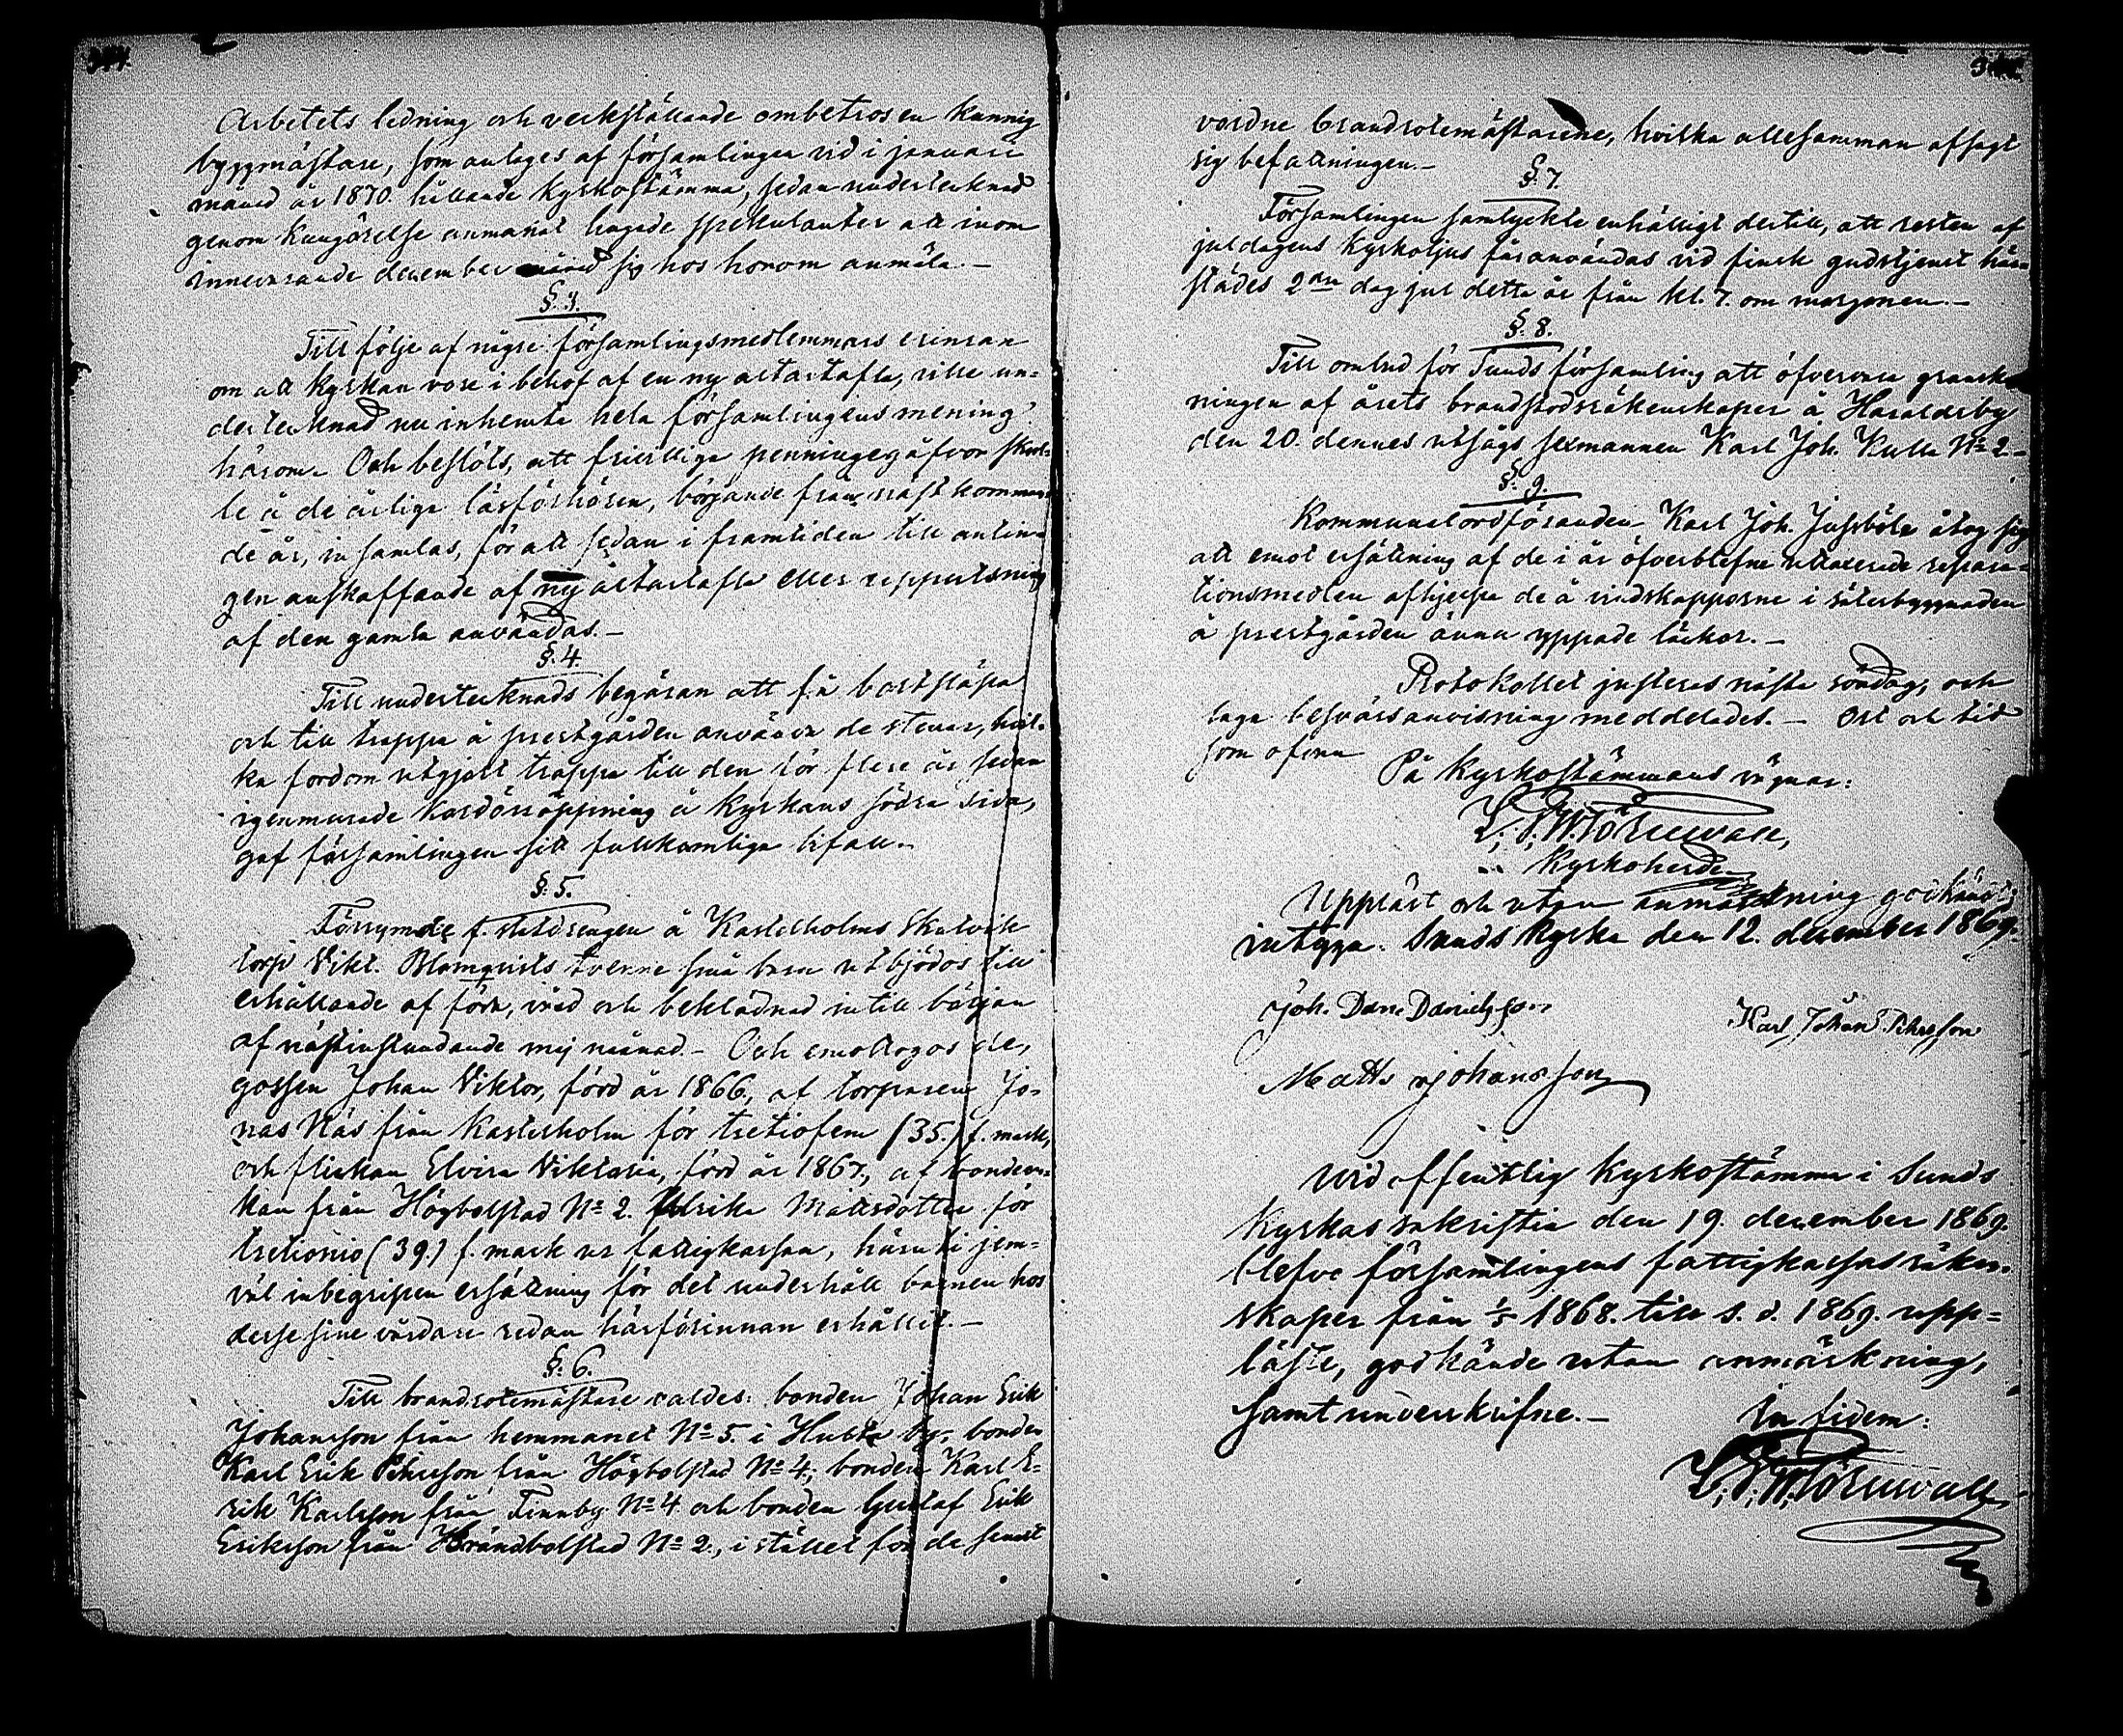 344.
Arbetets ledning och verkställande ombetros en kunnig
byggmästare, som antages af församlingen vid i januari
månad år 1870. hållande kyrkostämma, sedan undertecknad
genom kungörelse anmanat hugade spekulanter att inom
innevarande december månad sig hos honom anmäla.—
§. 3.
Till följe af någre församlingsmedlemmars erinran
om att kyrkan vore i behof af en ny altartafla, ville un-
dertecknad nu inhemta hela församlingens mening
härom. Och beslöts, att frivilliga penningegåfvor skul-
le å de årliga läsförhören, började från näst komman-
de år, insamlas, för att sedan i framtiden till antin-
gen anskaffande af ny altartafla eller uppputsning
af den gamla användas.—
§. 4.
Till undertecknads begäran att få bortsläpa
och till trappa å prestgården använda de stenar, hvil-
ka fordom utgjort trappa till den för flere år sedan
igenmurade kordörröppning å kyrkans södra sida,
gaf församlingen sitt fullkomliga bifall.—
§. 5.
Förrymde f. statdrengen å Kastelholms Skutvik
torp Vikt. Blomqvists tvenne små barn utbjödos till
erhållande af föda, vård och beklädnad intill början
af nästinstundande maj månad.— Och emottogos de,
gossen Johan Viktor, född år 1866, af torparen Jo-
nas Näs från Kastelholm för trettiofem (35.) f. mark,
och flickan Elvira Viktoria, född år 1867, af bondeen-
kan från Högbolstad No 2. Ulrika Mattsdotter för
trettionio (39.) f. mark ur fattigkassan, häruti jem-
väl inbegripen ersättning för det underhåll barnen hos
desse sine vårdare redan härförinnan erhållit.—
§. 6.
Till brandrotemästare valdes: bonden Johan Erik
Johansson från hemmanet No 5. i Hulta by, bonden
Karl Erik Petersson från Högbolstad No 4; bonden Karl E-
rik Karlsson från Finnby No 4 och bonden Gustaf Erik
Eriksson från Strandbolstad No 2., i stället för de senast
vordne brandrotemästarene, hvilka allesamman afsagt
sig befattningen.—
§. 7.
Församlingen samtyckte enhälligt dertill, att resten af
juldagens kyrkoljus får användas vid finsk gudstjenst här-
städes 2dra dag jul detta år från kl. 7. om morgonen.—
§. 8.
Till ombud för Sunds församling att öfvervara gransk-
ningen af årets brandstodsräkenskaper å Haraldsby
den 20. dennes utsågs sexmannen Karl Joh. Kulla No 2—
§. 9.
Kommunalordföranden Karl Joh. Jussböle åtog sig
att emot ersättning af de i år öfverblefne uttaxerade repara-
tionsmedlen afhjelpa de å vindskupporne i sätesbyggnaden
å prestgården ännu yppade läckor.—
Protokollet justeras nästa söndag, och
laga besvärsanvisning meddelades.— Ort och tid
som ofvan
På Kyrkostämmans vägnar:
L. P. W. Törnevall,
Kyrkoherde.
Uppläst och utan anmärkning godkändt
intyga. Sunds kyrka den 12. december 1869.
Joh. Dan. Danielsson
Karl Johan Petersson
Matts Johansson
Vid offentlig kyrkostämma i Sunds
kyrkas sakristia den 19. december 1869.
blefvo församlingens fattigkassas räken-
skaper från 1/5 1868. till s. d. 1869. upp-
läste, godkände utan anmärkning,
samt underskrifne.—
In fidem:
L. P. W. Törnevall